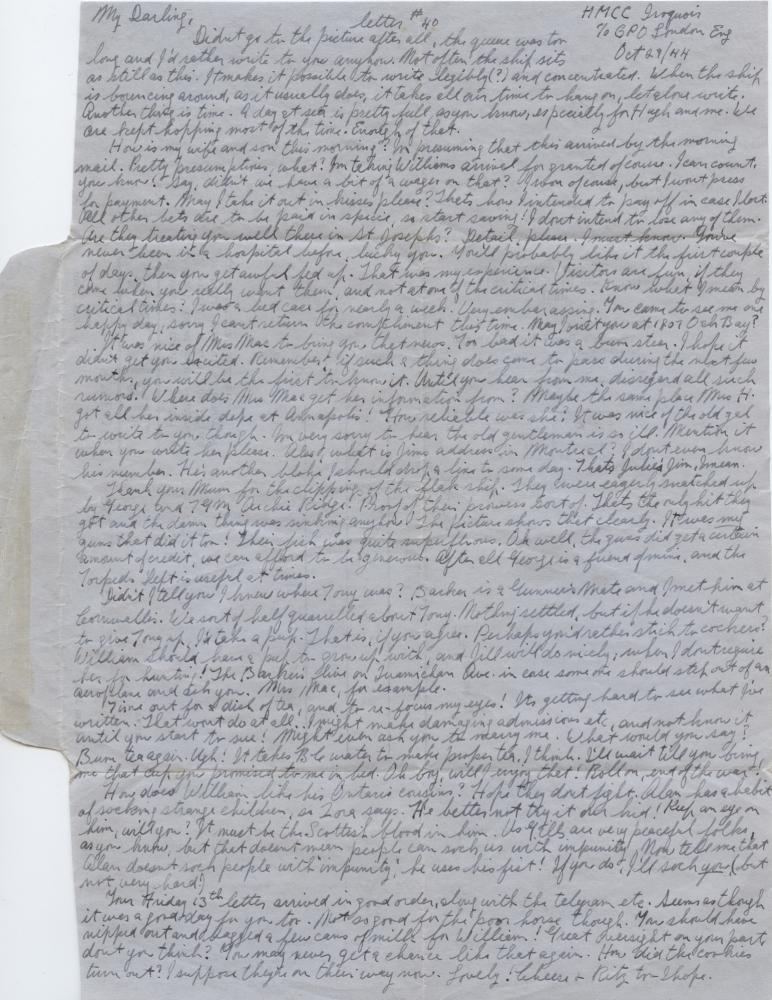 My Darling, letter #40 HMCS Iroquois
℅ GPO London Eng
Oct 29/44
Didn't go to the picture after all, the queue was too
long and I'd rather write to you anyhow. Not often the ship sits
as still as this. It makes it possible to write legibly(?) and concentrated. When the ship
is bouncing around, as it usually does, it takes all our time to hang on, let alone write.
Another thing is time. A day at sea is pretty full, as you know, especially for Hugh and me. We
are kept hopping most of the time. Enough of that.
How is my wife and son this morning? I'm presuming that this arrived by the morning
mail. Pretty presumptious, what! I'm taking Williams arrival for granted of course. I can count,
you know! Say, didn't we have a bit of a wager on that? I won of course, but I wont press
for payment. May I take it out in kisses please? Thats how I intended to pay off in case I lost.
All other bets are to be paid in specie, so start saving! I don't intend to lose any of them.
Are they treating you well there in St Josephs? Detail, please. I must know. You've
never been in a hospital before, lucky you. You'll probably like it the first couple
of days, then you get awful fed up. That was my experience. Visitors are fun, if they
come when you really want them, and not at one of the critical times. Know what I mean by
critical times? I was a bed case for nearly a week. Very embarassing. You came to see me one
happy day, sorry I cant return the compliment this time. May I visit you at 1807 Oak Bay?
It was nice of Mrs Mac to bring you that news. Too bad it was a bum steer. I hope it
didn't get you excited. Remember, if such a thing does come to pass during the next few
months, you will be the first to know it. Until you hear from me, disregard all such
rumors. Where does Mrs Mac get her information from? Maybe the same place Mrs H.
got all her inside dope at Annapolis! How reliable was she? It was nice of the old gal
to write to you though. I'm very sorry to hear the old gentleman is so ill. Mention it
when you write her please. Also, what is Jims address in Montreal? I dont even know
his number. He's another bloke I should drop a line to some day. Thats Julies Jim, I mean.
Thank your Mum for the clipping of the flak ship. They were eagerly snatched up
by George and Archie Proof of their prowess sort of. Thats the only hit they
got and the damn thing was sinking anyhow! The picture shows that clearly. It was my
guns that did it too! Their fish was quite superfluous. Oh well, the guns did get a certain
amount of credit, we can afford to be generous. After all George is a friend of mine, and the
Torpedo Dept is useful at times.
Didn't I tell you I knew where Tony was? Barker is a Gunner's Mate and I met him at
Cornwallis. We sort of half quarrelled about Tony. Nothing settled, but if he doesn't want
to give Tony up, I'd take a pup. That is, if you agree. Perhaps you'd rather stick to cockers?
William should have a pup to grow up with, and Jill will do nicely, when I don't require
her for hunting! The Barkers live on Quamichan Ave. in case some one should step out of an
aeroplane and ask you. Mrs Mac, for example.
Time out for a dish of tea, and to re-focus my eyes! Its getting hard to see what I've
written. That wont do at all. I might make damaging admissions etc, and not know it
until you start to sue! Might even ask you to marry me. What would you say?
Bum tea again. Ugh! It takes B.C. water to make proper tea, I think. I'll wait till you bring
me that cup you promised to me in bed. Oh boy, will I enjoy that! Roll on, end of the war!
How does William like his Ontario cousins? Hope they dont fight. Alan has a habit
of socking strange children, so Zora says. He better not try it our kid! Keep an eye on
him, will you? It must be the Scottish blood in him. Us are very peaceful folks,
as you know, but that doesnt mean people can sock us with impunity. Now tell me that
Alan doesnt sock people with 'impunity', he uses his fist! If you do, I'll sock you (but
not very hard)
Your Friday 13th letter arrived in good order, along with the telegram etc. Seems as though
it was a good day for you too. Not so good for the poor horse though. You should have
nipped out and bagged a few cans of milk for William! Great oversight on your part
dont you think? You may never get a chance like that again. How did the cookies
turn out? I suppose they're on their way now. Lovely! Cheese & Ritz too I hope.